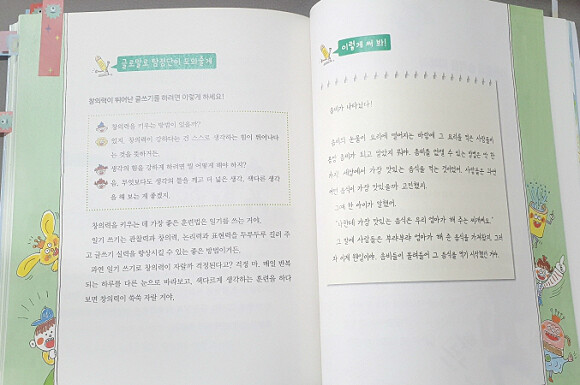 글로말로 탐정단이 도와줄게
창의력이 뛰어난 글쓰기를 하려면 이렇게 하세요!
창의력을 키우는 방법이 있을까?
있지. 창의력이 강하다는 건 스스로 생각하는 힘이 뛰어나다
는 것을 뜻하거든.
생각의 힘을 강하게 하려면 뭘 어떻게 해야 하지?
음, 무엇보다도 생각의 틀을 깨고 더 넓은 생각, 색다른 생각
을 해 보는 게 좋겠지.
창의력을 키우는 데 가장 좋은 훈련법은 일기를 쓰는 거야.
일기 쓰기는 관찰력과 창의력, 논리력과 표현력을 두루두루 길러 주
고 글쓰기 실력을 향상시킬 수 있는 좋은 방법이거든.
과연 일기 쓰기로 창의력이 자랄까 걱정된다고? 걱정 마. 매일 반복
되는 하루를 다른 눈으로 바라보고, 색다르게 생각하는 훈련을 하다
보면 창의력이 쑥쑥 자랄 거야.
이렇게 써 봐!
좀비가 나타났다!
좀비의 눈물이 요리에 떨어지는 바람에 그 요리를 먹은 사람들이
몽땅 좀비가 되고 말았지 뭐야. 좀비를 없앨 수 있는 방법은 딱 한
가지. 세상에서 가장 맛있는 음식을 먹는 것이었어. 사람들은 과연
어떤 음식이 가장 맛있을까 고민했지.
그때 한 아이가 말했어.
"나한테 가장 맛있는 음식은 우리 엄마가 해 주는 찌개예요."
그 말에 사람들은 부랴부랴 엄마가 해 준 음식을 가져왔지. 그러
자 이게 웬일이야. 좀비들이 몰려들어 그 음식을 먹기 시작했던 거야.